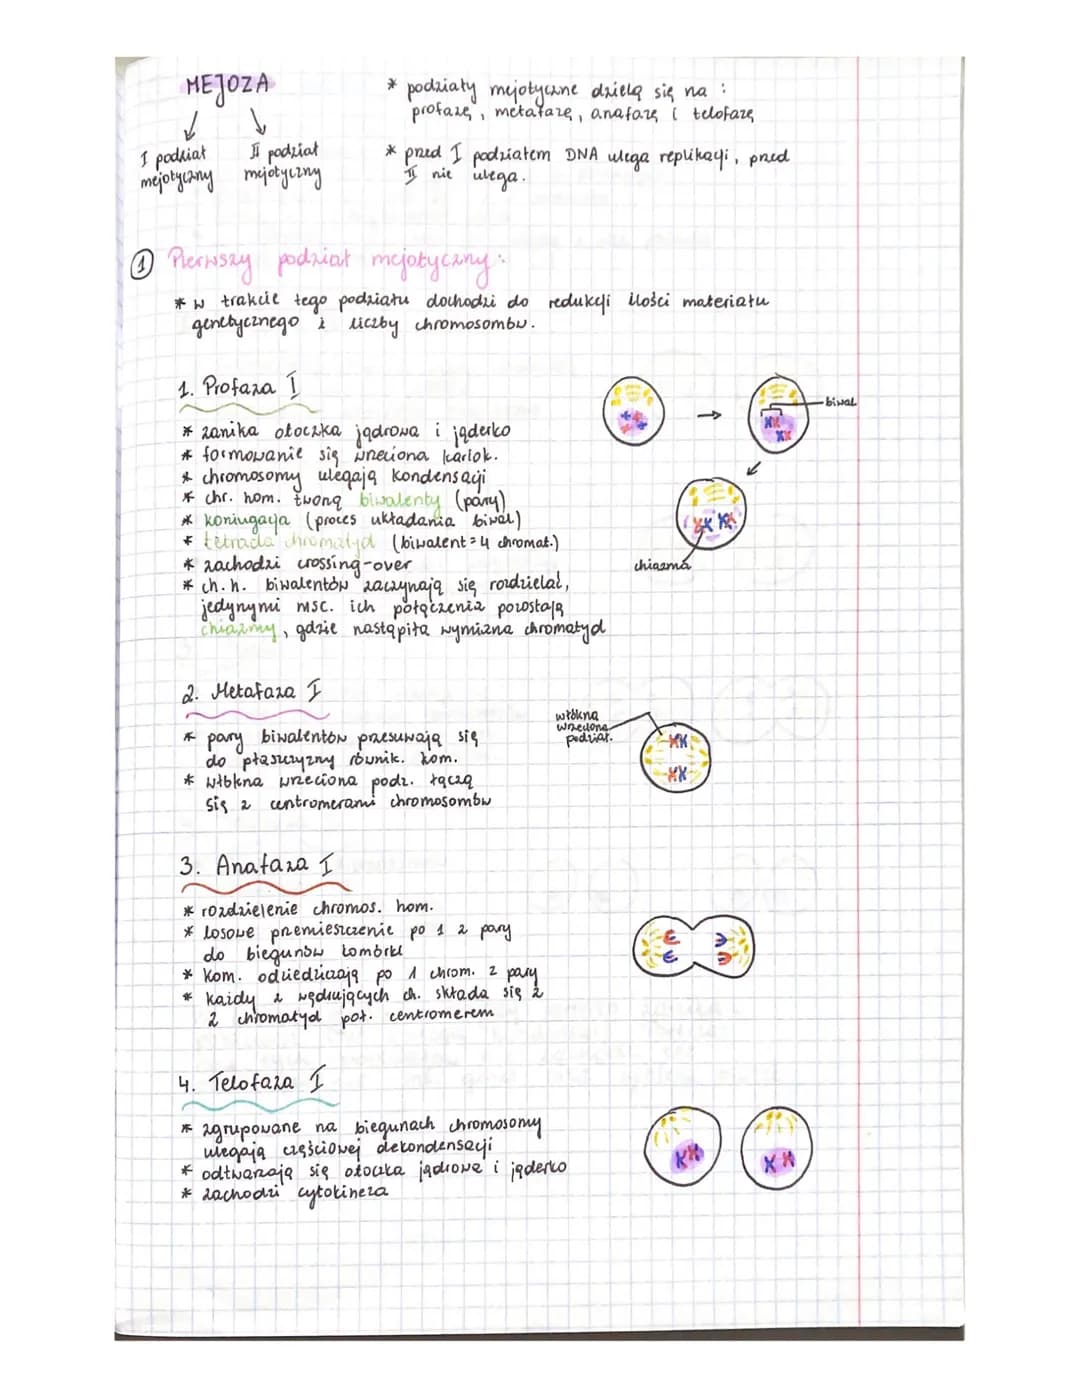 MEJOZA
I podział
mejotyczny
II podział
mejotyczny
* podziały mejotyczne dzielą się na :
profazę, metafazę, anafazę i telofazę
* przed I podziałem DNA ulega replikacji, przed
II nie ulega.
① Pierwszy podział mejotyczny:
* w trakcie tego podziału dochodzi do redukcji ilości materiału
genetycznego i liczby chromosomów.
1. Profaza I
* zanika otoczka jądrowa i jąderko
* formowanie się wrzeciona kariok.
* chromosomy ulegają kondensacji
* chr. hom. tworzą biwalenty (pary)
* koniugacja (proces układania biwal.)
* tetrada chromatyd (biwalent = 4 chromat.)
* zachodzi crossing-over
* ch. h. biwalentów zaczynają się rozdzielać,
jedynymi msc. ich połączenia pozostają
chiazmy, gdzie nastąpiła wymiana chromatyd
biwal.
chiazma
2. Metafaza I
* pary biwalentów przesuwają się
do płaszczyzny równik. kom.
* włókna wrzeciona podz. łączą
się z centromerami chromosomów
włókna
wrzeciona
podział.
3. Anafaza I
* rozdzielenie chromos. hom.
* losowe przemieszczenie po 1 z pary
do biegunów komórki
* kom. odziedziczają po 1 chrom. z pary
* każdy z wędrujących ch. składa się z
2 chromatyd poł. centromerem
4. Telofaza I
* zgrupowane na biegunach chromosomy
ulegają częściowej dekondensacji
* odtwarzają się otoczka jądrowa i jąderko
* zachodzi cytokineza